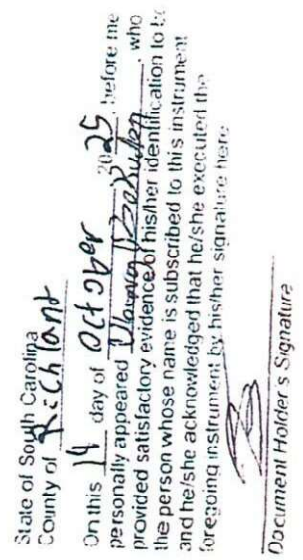 State of South Carolina
County of Richland
On this 14 day of October 2025, before me
personally appeared, who
provided satisfactory evidence of his/her identification to be
the person whose name is subscribed to this instrument
and he/she acknowledged that he/she executed the
foregoing instrument by his/her signature here
Document Holder's Signature